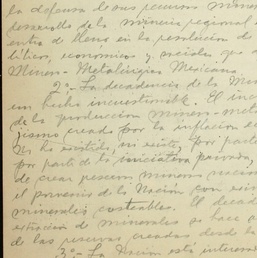 la defensa de sus recursos miner
desarrollo de la minería regional
entra de lleno en la resolución de
líticos, económicos y sociales que
Minero-Metalúrgica Mexicana.
2º- La decadencia de la Min
un hecho incuestionable. El inc
de la producción minero-meta
jismo creado por la inflación de
No ha existido, ni existe, por parte
por parte de la iniciativa privada,
de crear reservas mineras nacion
el provenir de la Nación con
minerales costeables. El decad
extracción de minerales se hace a
de las reservas creadas desde la
3º- La Nación está interesa